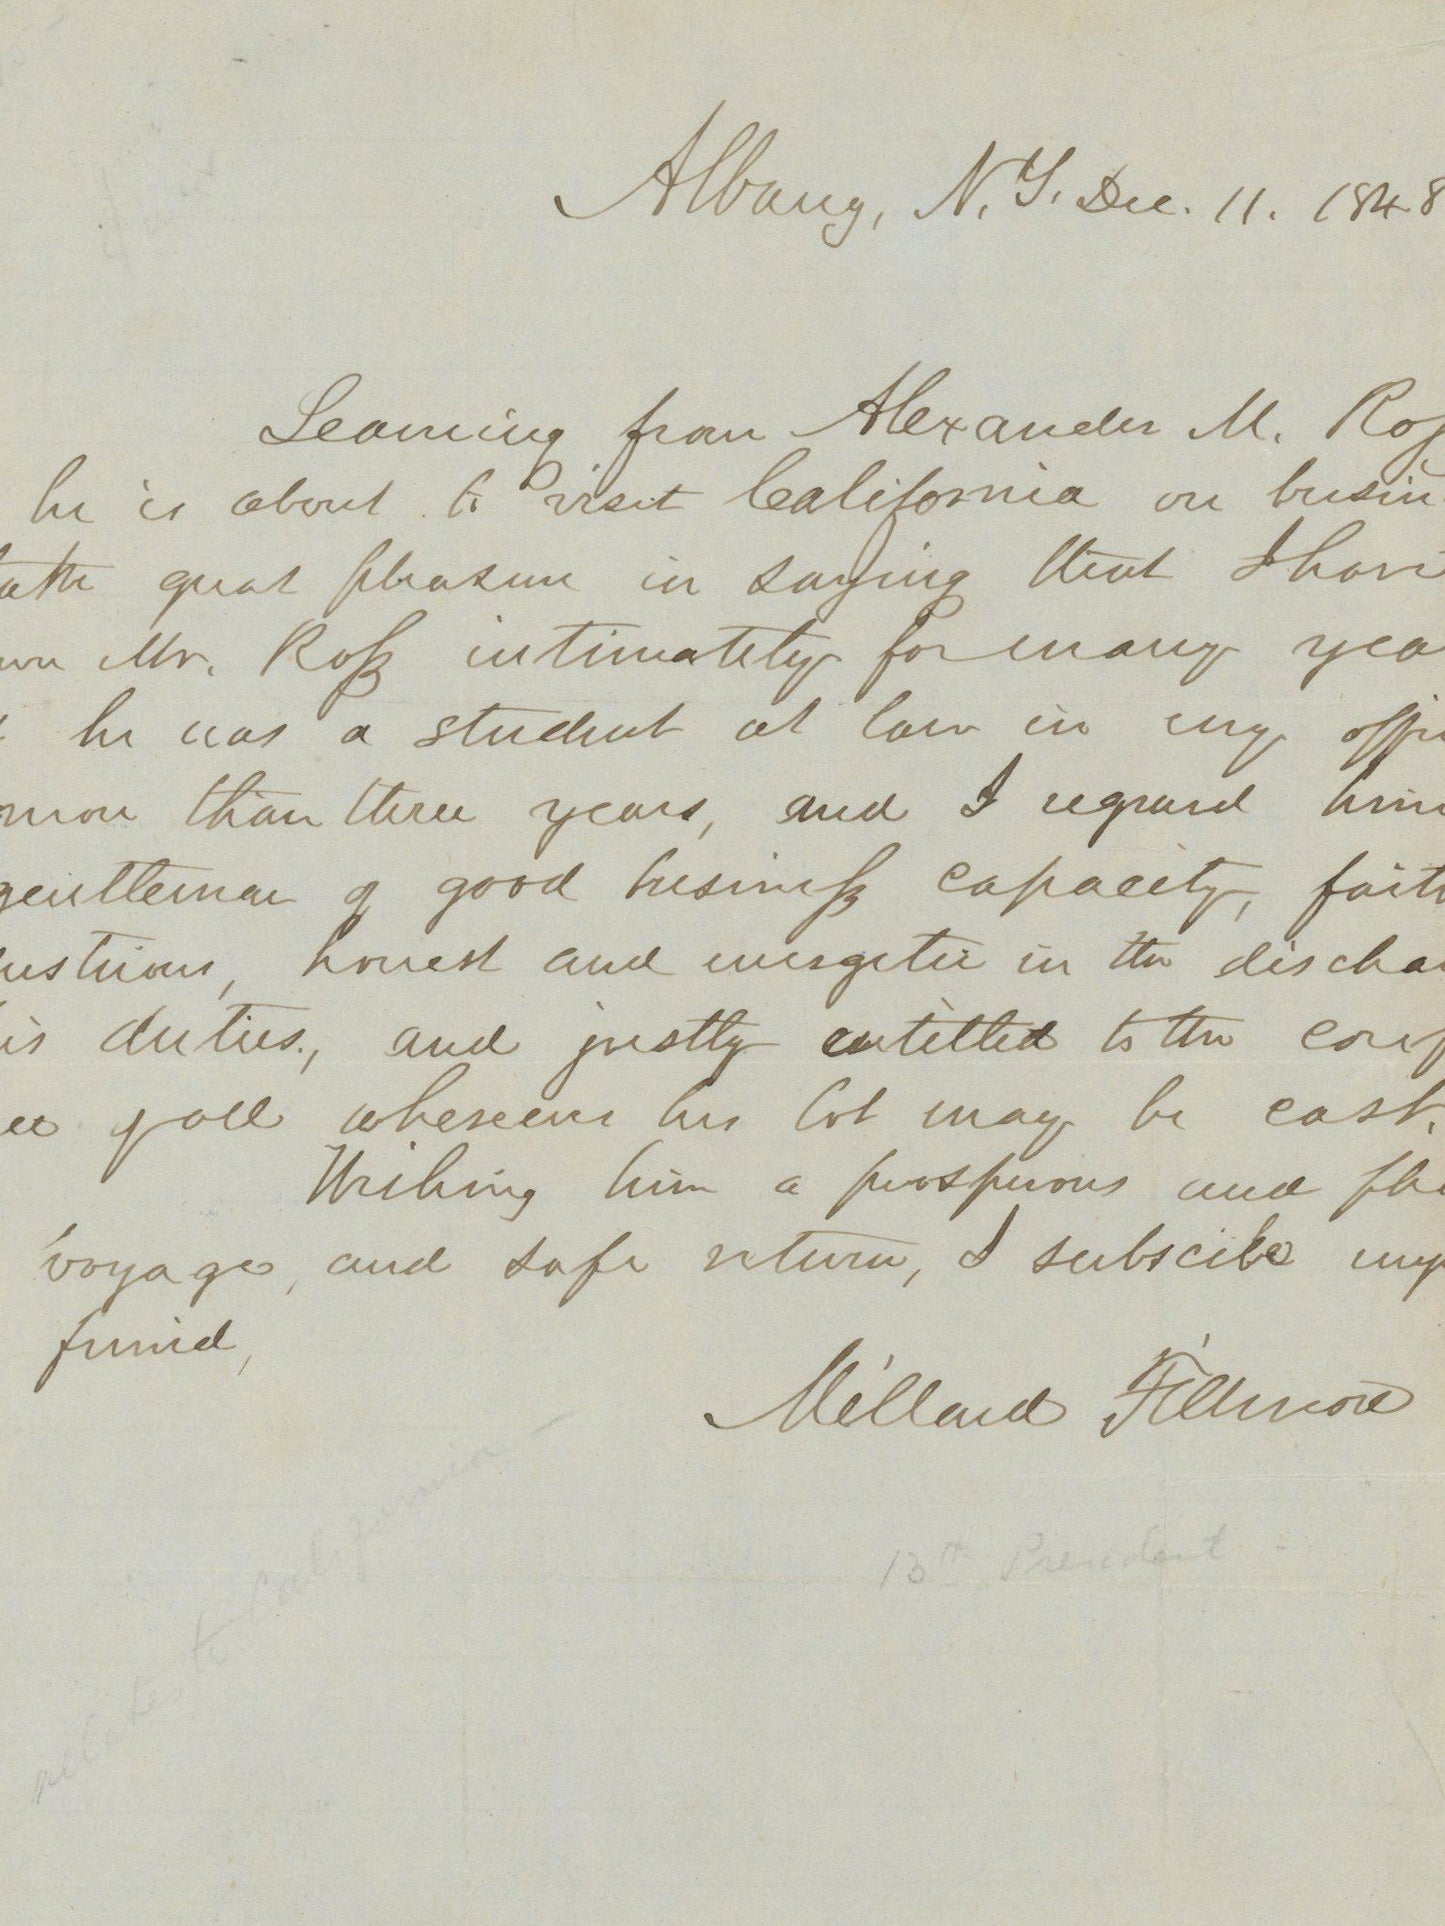 Albany, N.Y. Dec. 11. 1848
Learning from Alexander M. Ros
he is about to visit California on busin
take great pleasure in saying that I have
wn Mr. Ross intimately for many yea
he was a student at law in my offi
more than three years, and I regard him
gentleman of good business capacity, faith
dustrious, honest and energetic in the dischar
his duties, and justly entitled to the conf
ce of all wherever his lot may be cast.
Wishing him a prosperous and ple
voyage, and safe return, I subscibe my
friend,
Millard Fillmore
13th President
relates to California –